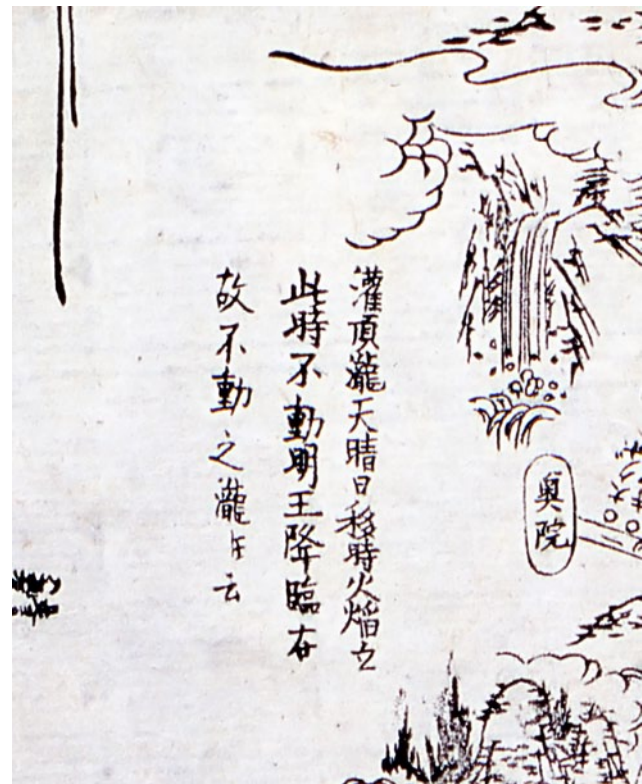 奥院
灌頂瀧天晴日移時火焔立
此時不動明王降臨在
故不動之瀧云